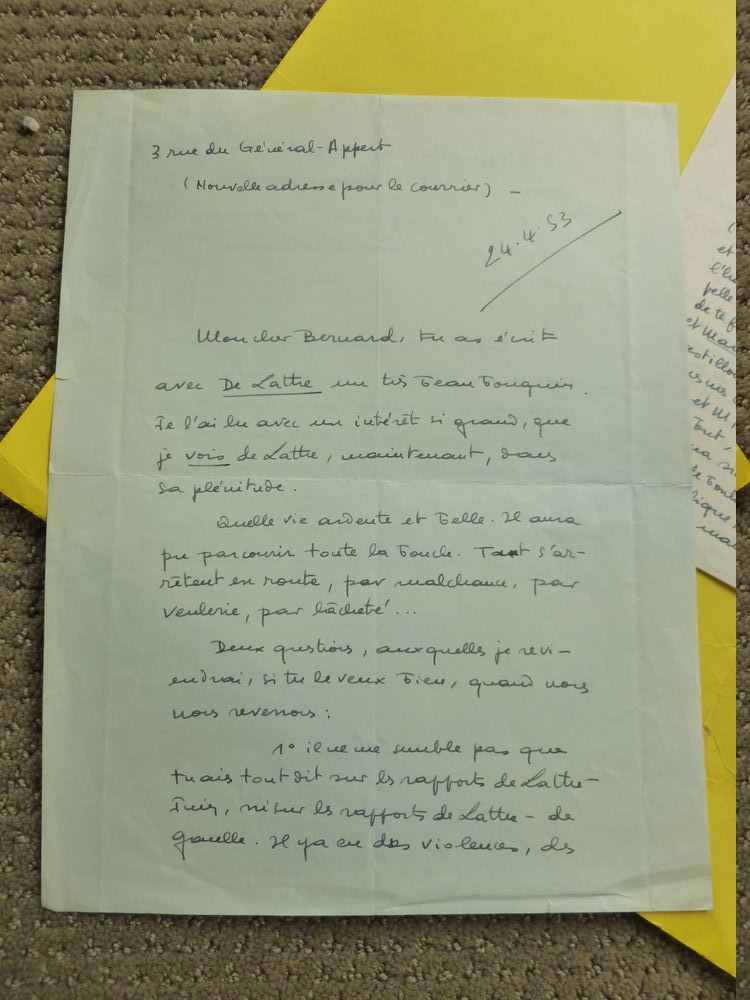 3 rue du Général-Appert
(Nouvelle adresse pour le courrier) -
24.4.53
Mon cher Bernard, tu as écrit
avec De Lattre un très beau bouquin.
Je l'ai lu avec un intérêt si grand, que
je vois de Lattre, maintenant, dans
sa plénitude.
Quelle vie ardente et belle. Il aura
pu parcourir toute la boucle. Tant s'ar-
rêtent en route, par malchance, par
veulerie, par lâcheté...
Deux questions, auxquelles je revi-
endrai, si tu le veux bien, quand nous
nous reverrons :
1° il ne me semble pas que
tu ais tout dit sur les rapports de Lattre-
Juin, ni sur les rapports de Lattre - de
Gaulle. Il y a eu des violences, des
et
pelle
de te
et
et M
Tout,